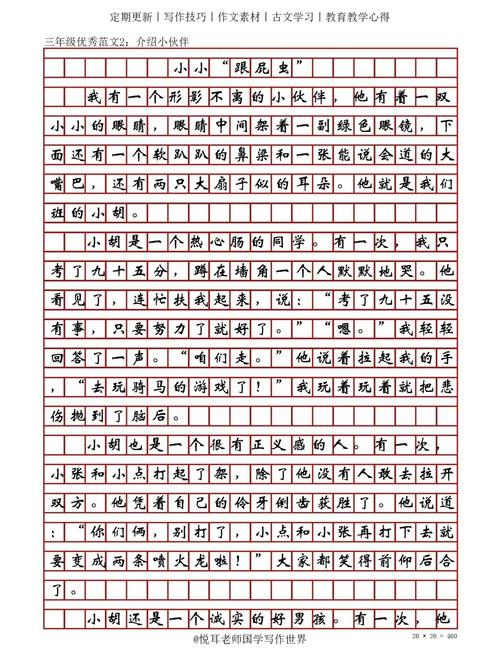 定期更新丨写作技巧丨作文素材丨古文学习丨教育教学心得
三年级优秀范文2：介绍小伙伴
小小“跟屁虫”
我有一个形影不离的小伙伴，他有着一双
小小的眼睛，眼睛中间架着一副绿色眼镜，下
面还有一个软趴趴的鼻梁和一张能说会道的大
嘴巴，还有两只大扇子似的耳朵。他就是我们
班的小胡。
小胡是一个热心肠的同学。有一次，我只
考了九十五分，蹲在墙角一个人默默地哭。他
看见了，连忙扶我起来，说：“考了九十五没
有事，只要努力了就好了。”“嗯。”我轻轻
回答了一声。“咱们走。”他说着拉起我的手
，“去玩骑马的游戏了！”我玩着玩着就把悲
伤抛到了脑后。
小胡也是一个很有正义感的人。有一次，
小张和小点打起了架，除了他没有人敢去拉开
双方。他凭着自己的伶牙俐齿获胜了。他说道
：“你们俩，别打了，小点和小张再打下去就
要变成两条喷火龙啦！”大家都笑得前仰后合
了。
小胡还是一个诚实的好男孩。有一次，他
@悦耳老师国学写作世界
20 × 20 = 400